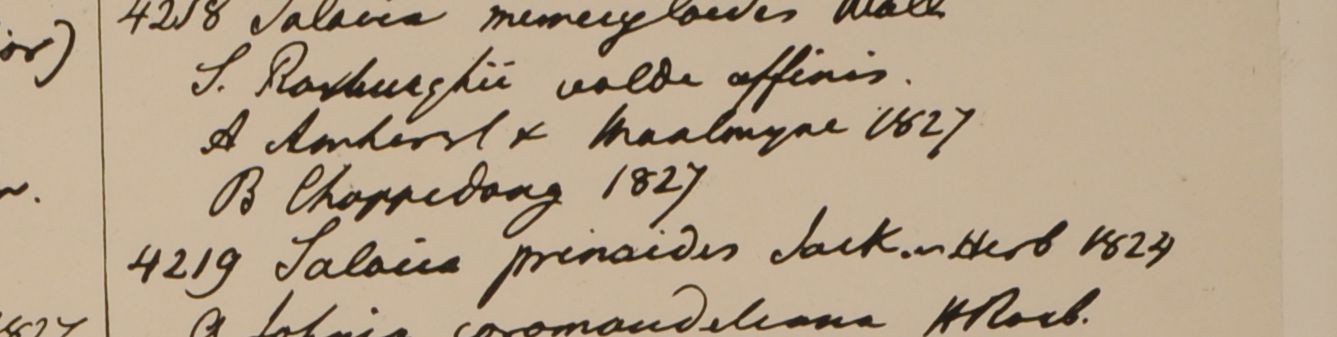 ior)
4218 Salacia memecyloides Wall
S. Roxburghii valde affinis.
A Amherst & Maalmyne 1827
B Chappedong 1827
4219 Salacia prinoides Jack in Herb 1824
Johnia coromandeliana HRoxb.
1827